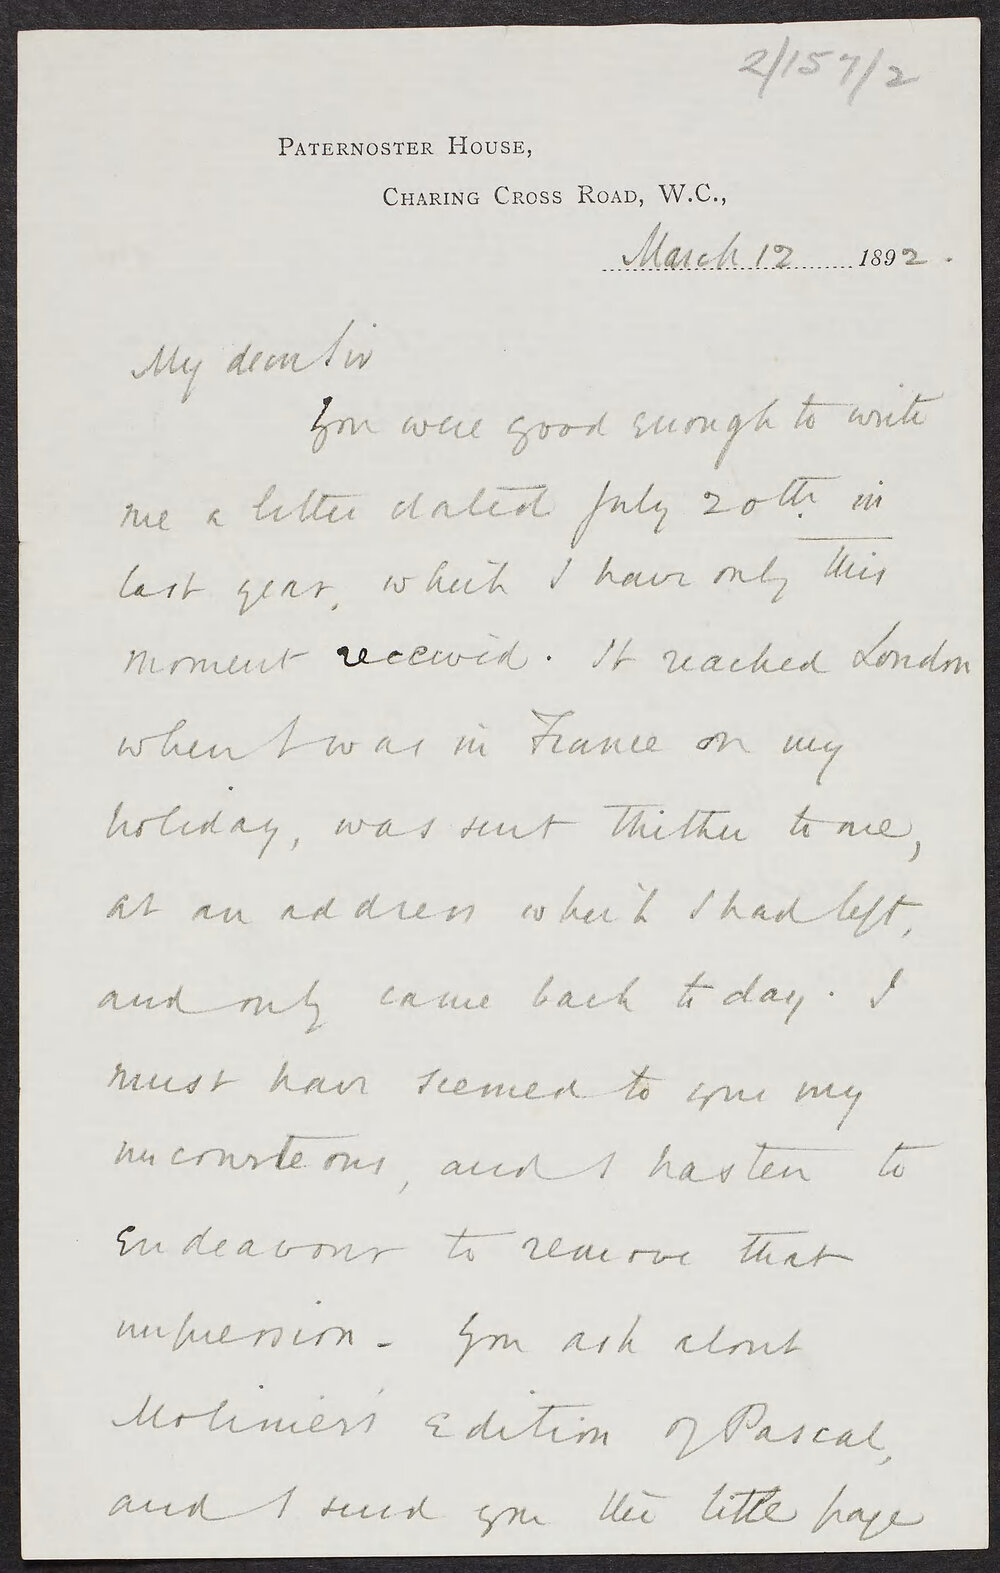 2/157/2
PATERNOSTER HOUSE,
CHARING CROSS ROAD, W.C.,
March 12 1892.
My dear Sir
You were good enough to write
me a letter dated July 20th. in
last year, which I have only this
moment received. It reached London
when I was in France on my
holiday, was sent thither to me,
at an address which I had left,
and only came back to day. I
must have seemed to you my
uncourteous, and I hasten to
Endeavour to remove that
impression - You ask about
Molinier's Edition of Pascal,
and I send you the title page